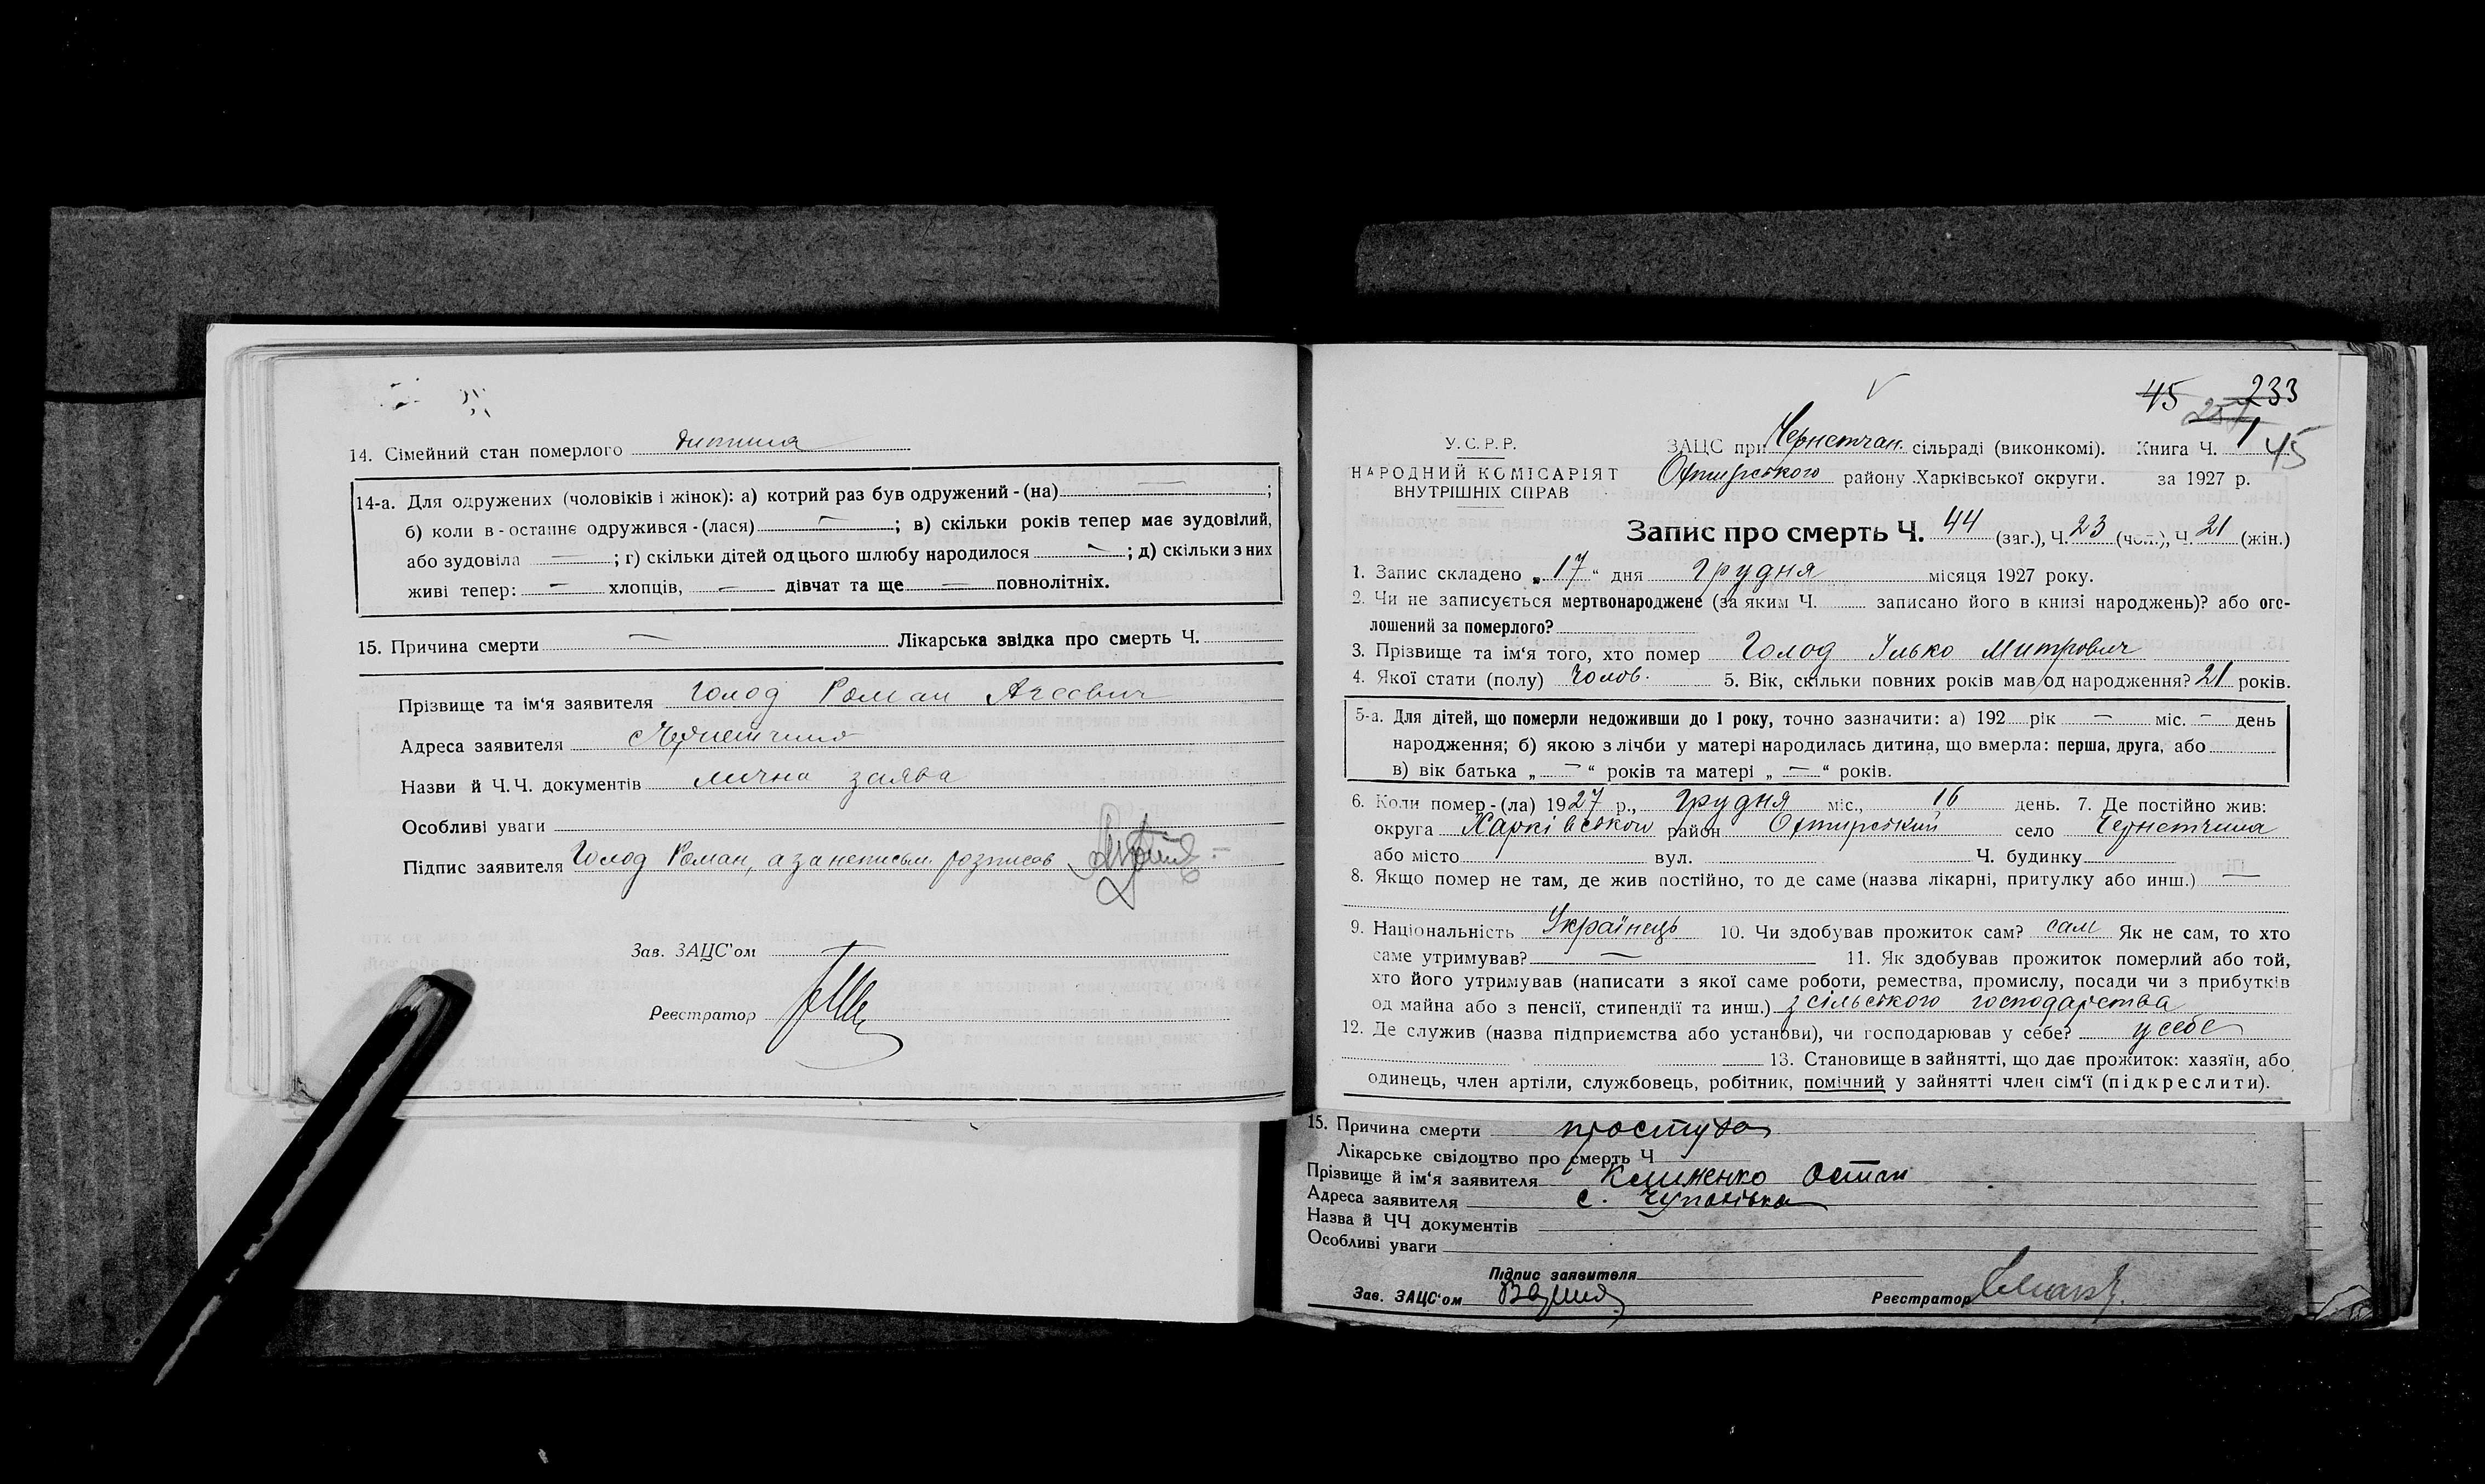 14. Сімейний стан померлого дитина
14-а. Для одружених (чоловіків і жінок): а) котрий раз був одружений - (на) — ;
б) коли в - останнє одружився - (лася) — ; в) скільки років тепер має зудовілий,
або зудовіла — ; г) скільки дітей од цього шлюбу народилося — ; д) скільки з них
живі тепер: — хлопців, — дівчат та ще — повнолітніх.
15. Причина смерти — Лікарська звідка про смерть Ч.
Прізвище та ім'я заявителя Голод Роман Агеєвич
Адреса заявителя Чернетчина
Назви й Ч.Ч. документів лична заява
Особливі уваги
Підпис заявителя Голод Роман, а за неписьм. розписов
Зав. ЗАЦС'ом
Реєстратор
45 233
257
У.С.Р.Р.
НАРОДНИЙ КОМІСАРІЯТ
ВНУТРІШНІХ СПРАВ
ЗАЦС при Чернетчан. сільраді (виконкомі). Книга Ч. 1 45
Охтирського району Харківської округи. за 1927 р.
Запис про смерть Ч. 44 (заг.), Ч. 23 (чол.), Ч. 21 (жін.)
1. Запис складено „ 17 “ дня грудня місяця 1927 року.
2. Чи не записується мертвонароджене (за яким Ч. записано його в книзі народжень)? або ого-
лошений за померлого?
3. Прізвище та ім'я того, хто помер Голод Ілько Митрович
4. Якої стати (полу) Чолов. 5. Вік, скільки повних років мав од народження? 21 років.
5-а. Для дітей, що померли недоживши до 1 року, точно зазначити: а) 192 рік — міс. — день
народження; б) якою з лічби у матері народилась дитина, що вмерла: перша, друга, або
в) вік батька „ — “ років та матері „ — “ років.
6. Коли помер - (ла) 1927 р., грудня міс., 16 день. 7. Де постійно жив:
округа Харківськой район Охтирський село Чернетчина
або місто вул. Ч. будинку
8. Якщо помер не там, де жив постійно, то де саме (назва лікарні, притулку або инш.) —
9. Національність Українець 10. Чи здобував прожиток сам? сам Як не сам, то хто
саме утримував? — 11. Як здобував прожиток померлий або той,
хто його утримував (написати з якої саме роботи, ремества, промислу, посади чи з прибутків
од майна або з пенсії, стипендії та инш.) з сільського господарства
12. Де служив (назва підприємства або установи), чи господарював у себе? у себе
13. Становище в зайнятті, що дає прожиток: хазяїн, або
одинець, член артіли, службовець, робітник, помічний у зайнятті член сім'ї (підкреслити).
15. Причина смерти простуда
Лікарське свідоцтво про смерть Ч
Прізвище й ім'я заявителя Клименко Остап
Адреса заявителя с. Чупахівка
Назва й ЧЧ документів
Особливі уваги
Підпис заявителя
Зав. ЗАЦС'ом
Реєстратор